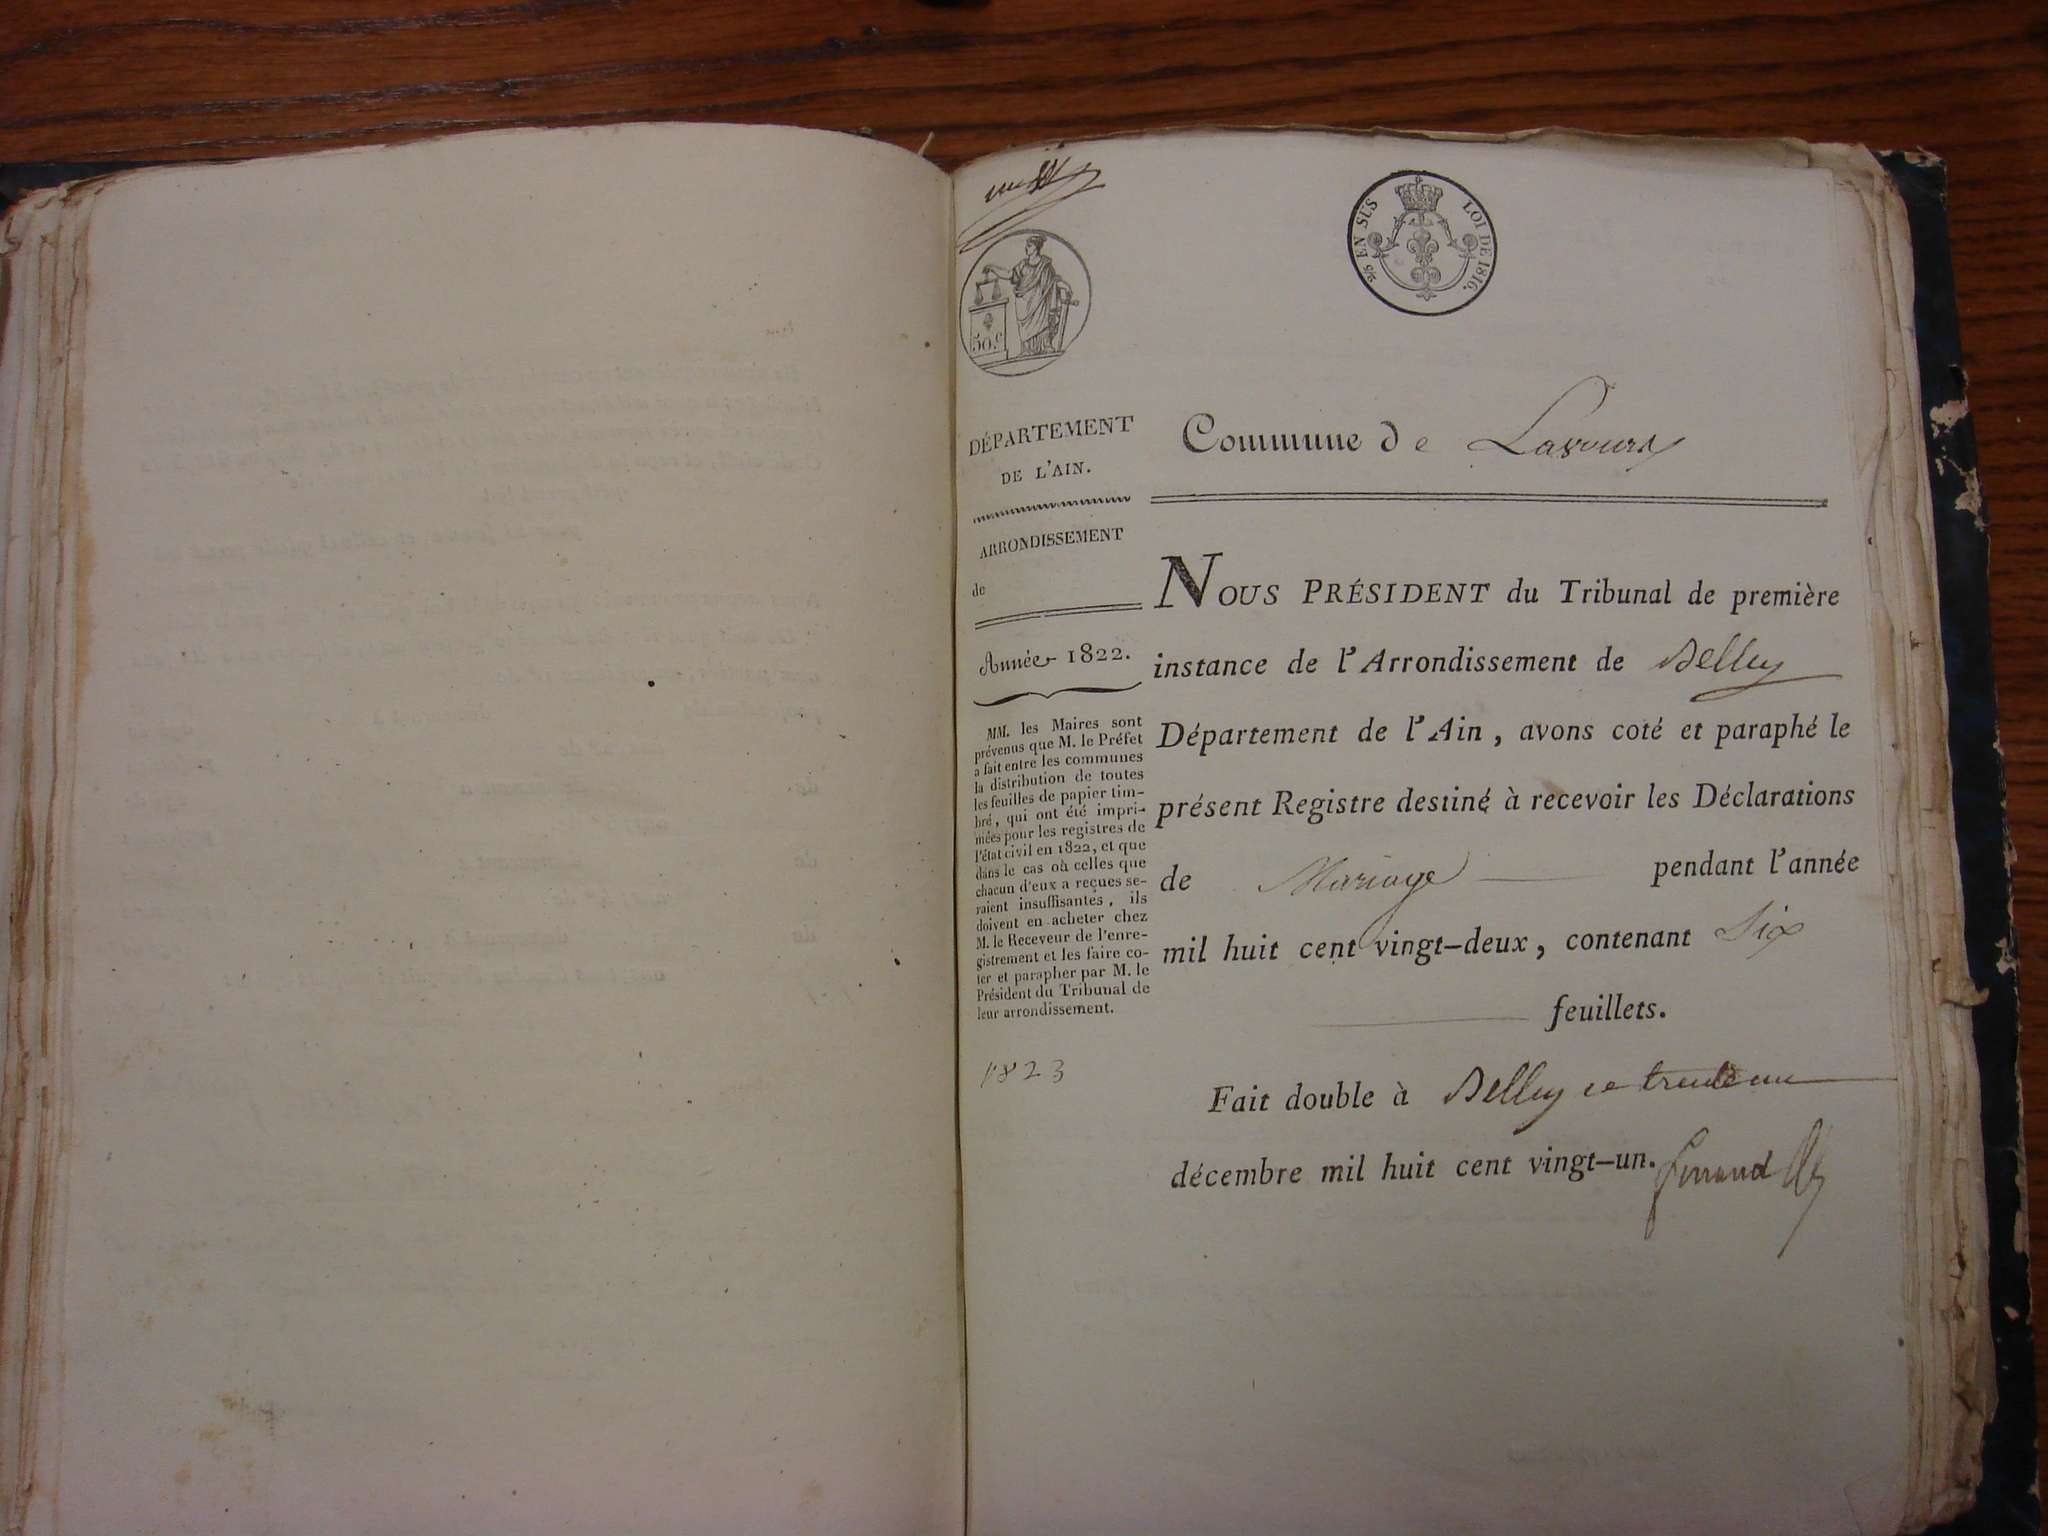 EN SUS LOI DE 1816.
50.c
DÉPARTEMENT
DE L'AIN.
ARRONDISSEMENT
de
Année 1822.
MM. les Maires sont
prévenus que M. le Préfet
a fait entre les communes
la distribution de toutes
les feuilles de papier tim-
bré, qui ont été impri-
mées pour les registres de
l'état civil en 1822, et que
dans le cas où celles que
chacun d'eux a reçues se-
raient insuffisantes, ils
doivent en acheter chez
M. le Receveur de l'enre-
gistrement et les faire co-
ter et parapher par M. le
Président du Tribunal de
leur arrondissement.
1823
Commune de Lavours
NOUS PRÉSIDENT du Tribunal de première
instance de l'Arrondissement de Belley
Département de l'Ain, avons coté et paraphé le
présent Registre destiné à recevoir les Déclarations
de Mariage pendant l'année
mil huit cent vingt-deux, contenant Six
feuillets.
Fait double à Belley ce trente un
décembre mil huit cent vingt-un.